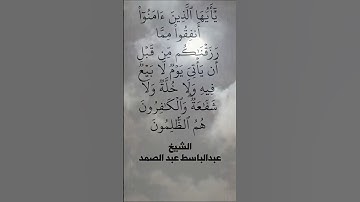 يَٰٓأَيُّهَا ٱلَّذِينَ ءَامَنُوٓا۟
أَنفِقُوا۟ مِمَّا
رَزَقْنَٰكُم مِّن قَبْلِ
أَن يَأْتِىَ يَوْمٌ لَّا بَيْعٌ
فِيهِ وَلَا خُلَّةٌ وَلَا
شَفَٰعَةٌ وَٱلْكَٰفِرُونَ
هُمُ ٱلظَّٰلِمُونَ
الشيخ
عبدالباسط عبد الصمد